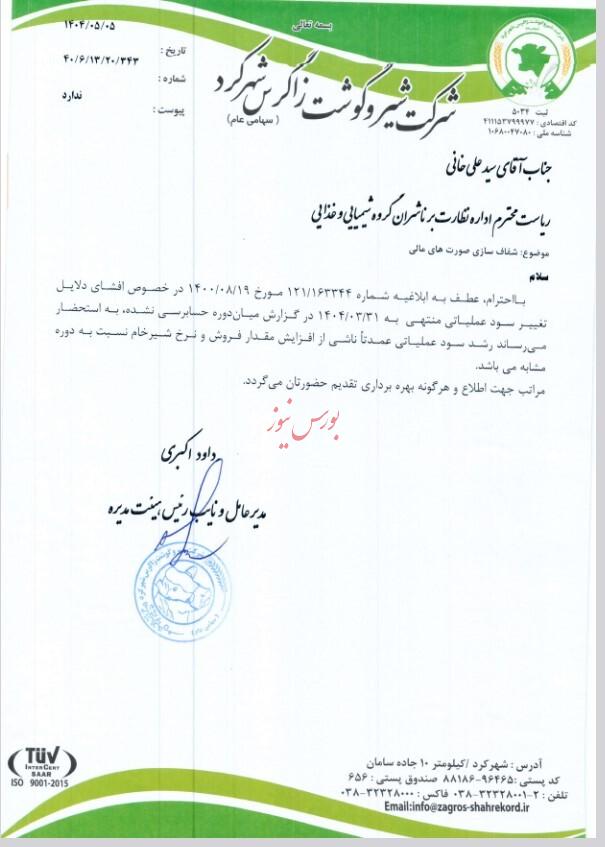 بسمه تعالی
تاریخ : ۱۴۰۴/۰۵/۰۵
شماره : ۴۰/۶/۱۳/۲۰/۳۴۳
پیوست : ندارد
شرکت شیر و گوشت زاگرس شهرکرد
( سهامی عام )
ثبت ۵۰۳۴
کد اقتصادی : ۴۱۱۱۵۳۷۹۹۹۷۷
شناسه ملی : ۱۰۶۸۰۰۴۷۰۸۰
جناب آقای سید علی خانی
ریاست محترم اداره نظارت بر ناشران گروه شیمیایی و غذایی
موضوع: شفاف سازی صورت های مالی
سلام
بااحترام، عطف به ابلاغیه شماره ۱۲۱/۱۶۳۳۴۴ مورخ ۱۴۰۰/۰۸/۱۹ در خصوص افشای دلایل
تغییر سود عملیاتی منتهی به ۱۴۰۴/۰۳/۳۱ در گزارش میان‌دوره حسابرسی نشده، به استحضار
می‌رساند رشد سود عملیاتی عمدتاً ناشی از افزایش مقدار فروش و نرخ شیرخام نسبت به دوره
مشابه می باشد.
مراتب جهت اطلاع و هرگونه بهره برداری تقدیم حضورتان می‌گردد.
بورس نیوز
داود اکبری
مدیر عامل و نایب رئیس هیئت مدیره
TÜV
INTERCERT
SAAR
ISO 9001-2015
آدرس : شهرکرد /کیلومتر ۱۰ جاده سامان
کد پستی :۹۶۴۶۵-۸۸۱۸۶ صندوق پستی : ۶۵۶
تلفن : ۲-۳۲۳۲۸۰۰۱-۰۳۸ فاکس : ۳۲۳۲۸۰۰۰-۰۳۸
Email:info@zagros-shahrekord.ir